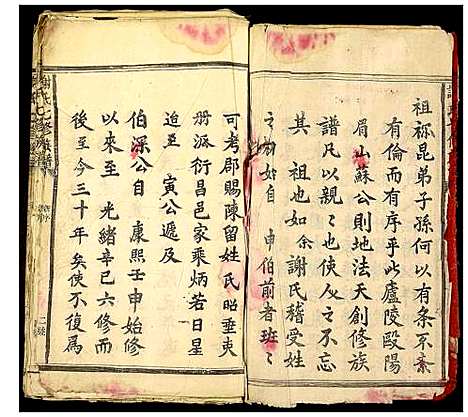 祖祢昆弟子孫何以有条不紊
有倫而有序乎此廬陵歐陽
眉山蘇公則地法天創修族
譜凡以親親也使人人不忘
其 祖也如余謝氏稽受姓
之始始自 申伯前者班班
可考郡賜陳留姓氏昭垂吏
册派衍昌邑家乘炳若日星
迫至 寅公遞及
伯深公自 康熙壬申始修
以來至 光緒辛巳六修而
後至今三十年矣使不復為
謝氏七修族譜